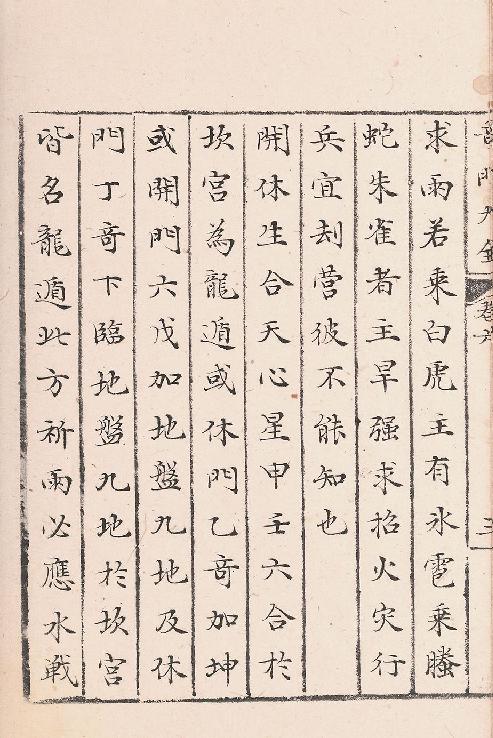 求雨若乘白虎主有氷雹乘螣
蛇朱雀者主旱强求招火灾行
兵宜刦营彼不能知也
開休生合天心星甲壬六合於
坎宫為龍遁或休門乙竒加坤
或開門六戊加地盤九地及休
門丁竒下臨地盤九地於坎宫
皆名龍遁此方祈雨必應水戦